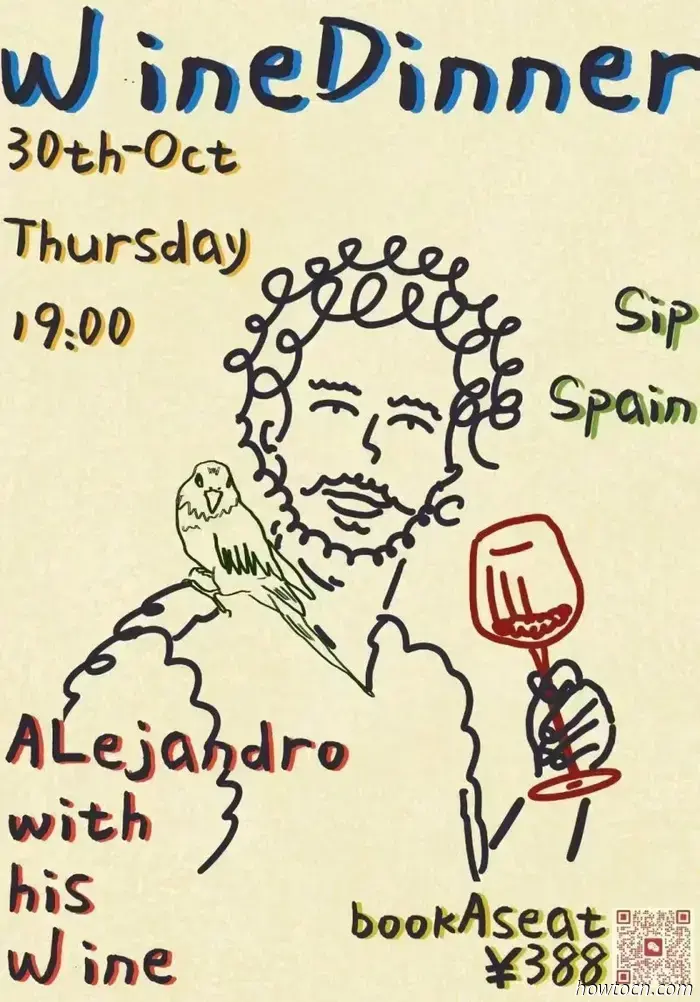 WineDinner
30th-Oct
Thursday
19:00
Sip
Spain
ALejandro
with
his
Wine
bookAseat
¥388
howtocn.com